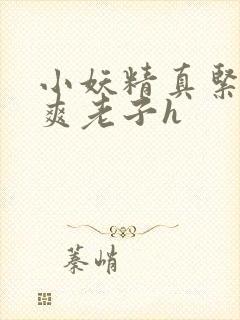 小妖精真紧
爽老子h
蓁峭